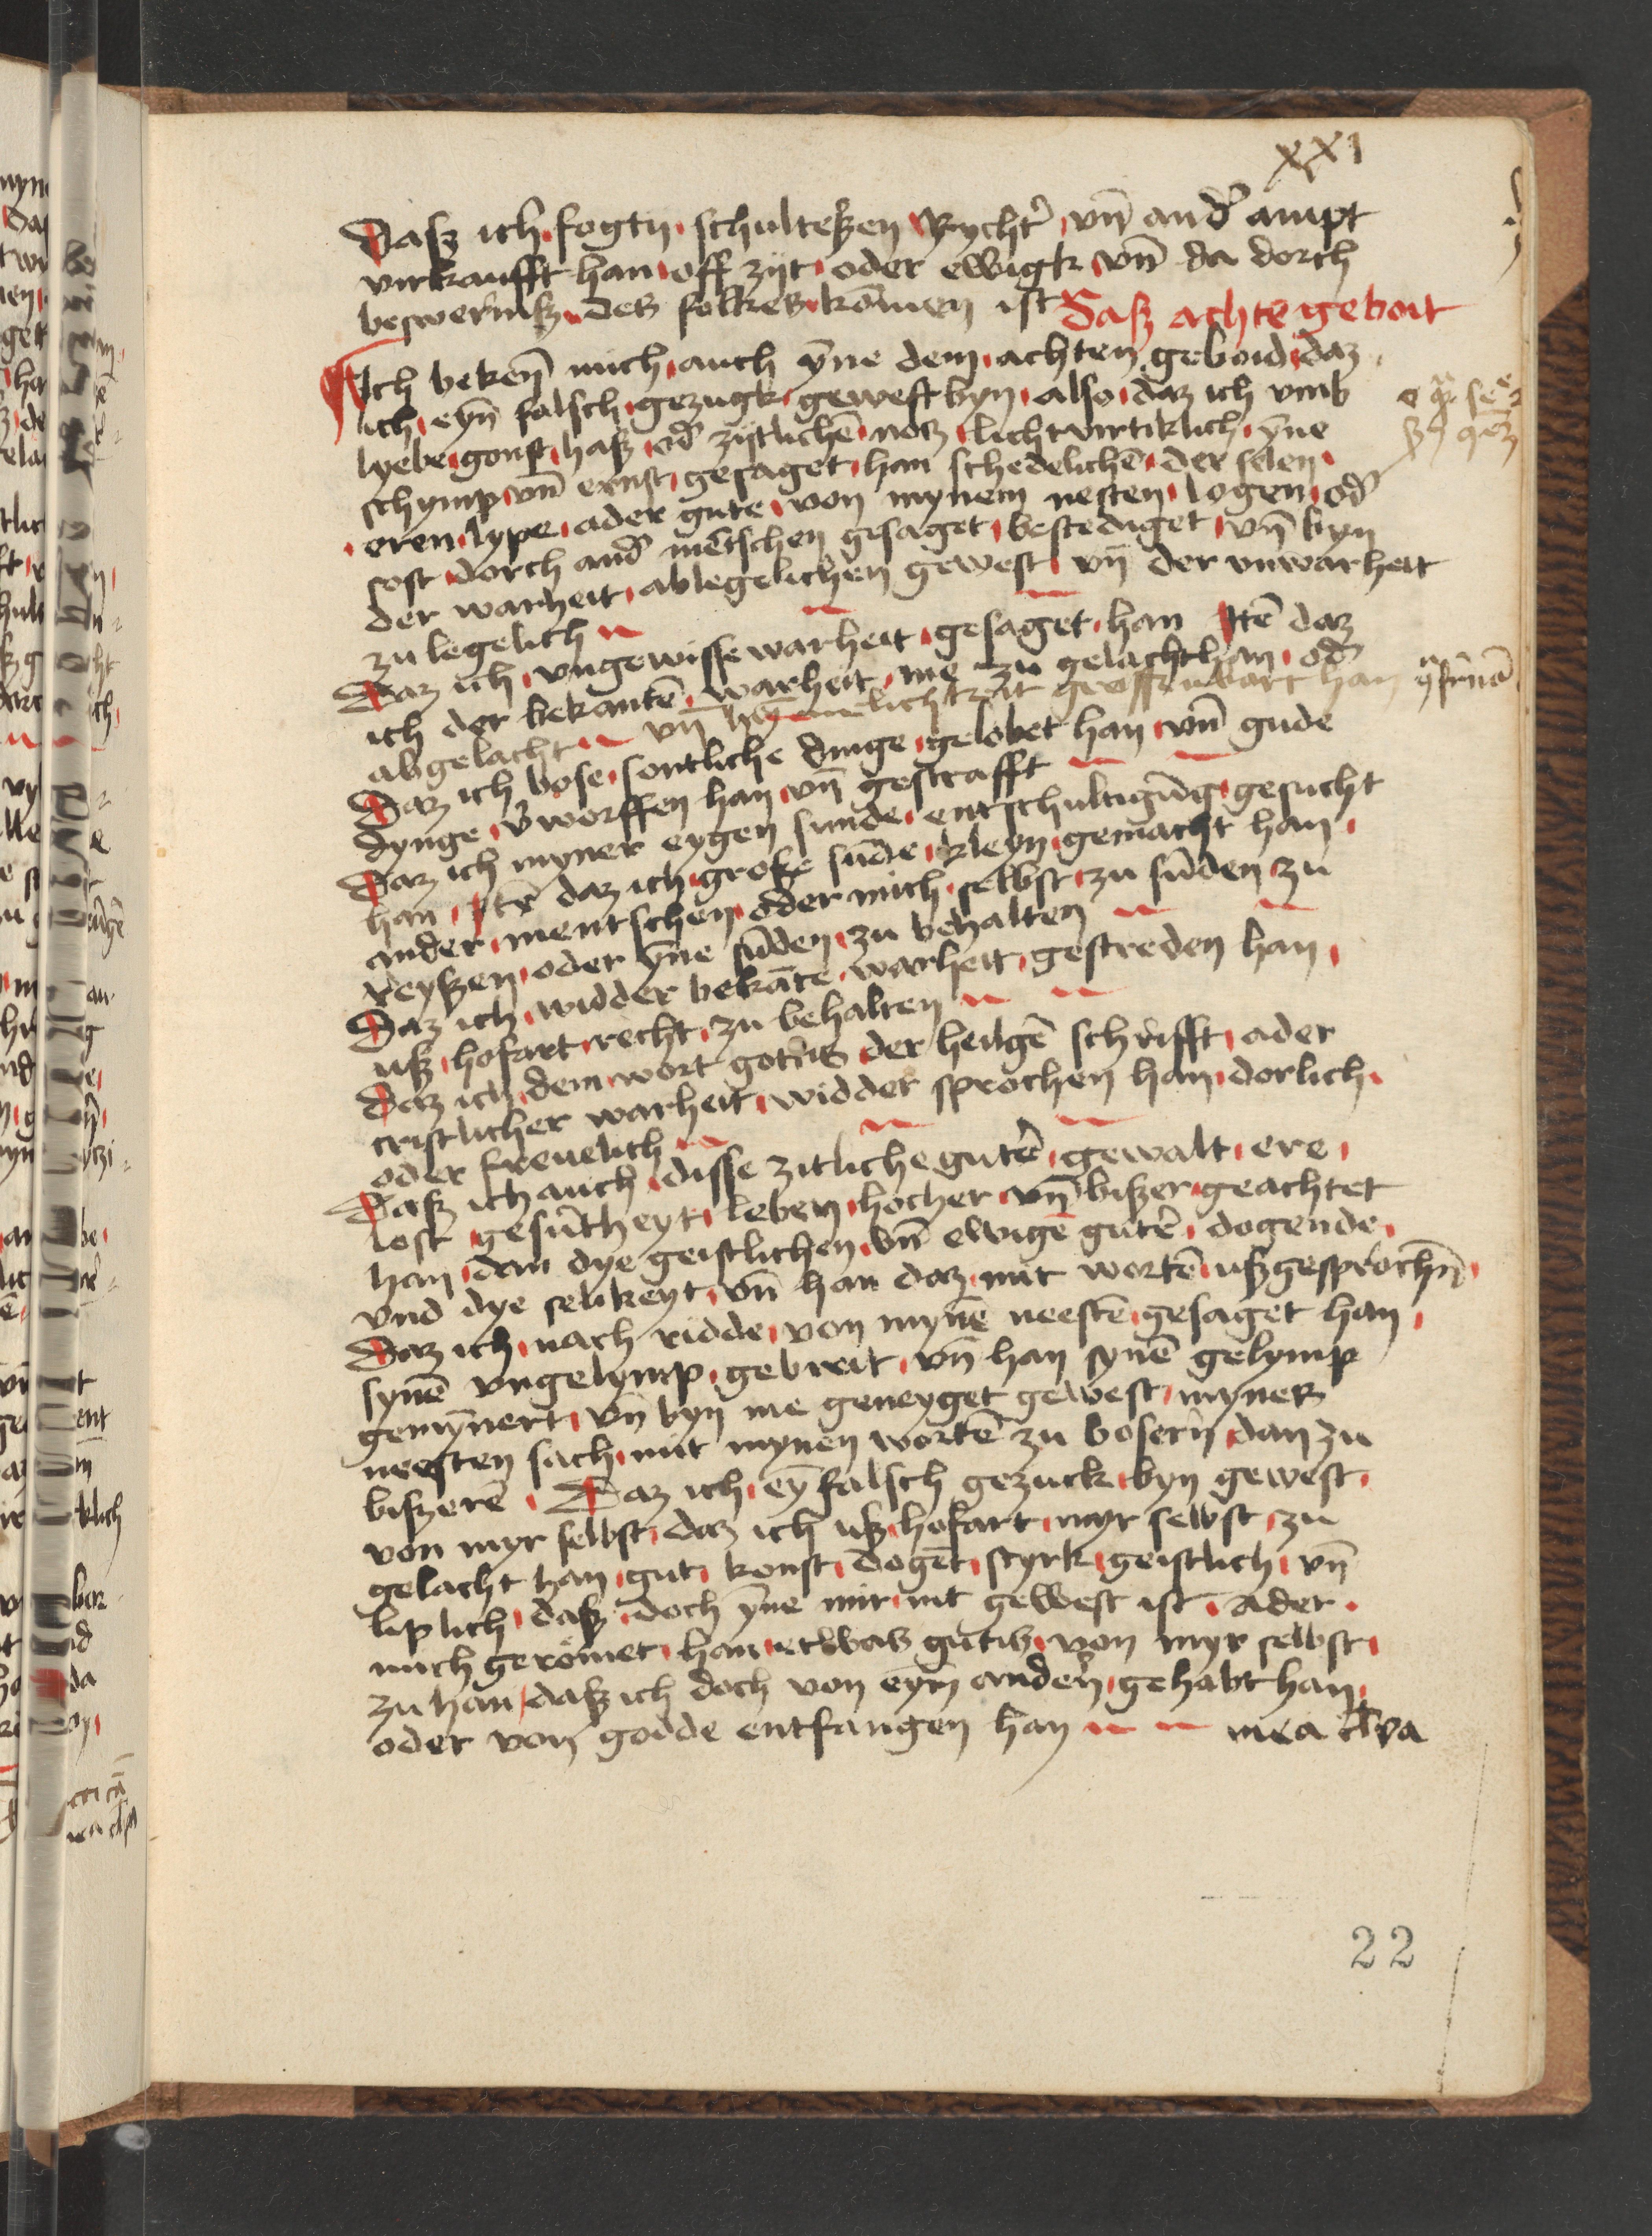 xxi
Dasz ich fogty schulteszen Rycht̉ vn̄ and̉ ampt
virkaufft han off zijt oder ewigk vn̄ da dorch
beswernisz des folkes kom̄en ist Dasz achte geboit
Ich beken̄ mich auch yn̄e dem achten geboid daz
ich eyn̄ falsch gezugk gewest byn also daz ich vmb
lyebe gonst hasz od̉ zijtlichē nocz lichtvirtiklich yn̄e
schymp vn̄ ernst gesaget han schedelichē der selen
eren lype ader gute von mynem nesten logen od̉
sost dorch and̉ mētschen gesaget bestediget vn̄ byn
der warheit ablegelichen gewest vn̄ der vnwarheit
zu legelich
Daz ich vngewisse warheit gesaget han Itē daz
ich der bekantē warheit me zu gelacht han od̉
abgelacht vn̄
Daz ich bose sontliche dinge gelobet han vn̄ gude
dynge v̉worffen han vn̄ gestrafft
Daz ich myner eygen sunde entschultigūg gesucht
han Itē daz ich grosze sūde kleyn gemacht han
ander mentschen oder mich selbst zu sūden zu
reyszen oder yn̄e sūden zu behalten
Daz ich widder bekāte warheit gestreden han
usz hofart recht zu behalten
Daz ich dem wort gottis der heilgē schrifft ader
cristlicher warheit widder sprochen han dorlich
oder freuelich
Dasz ich auch disse zitliche gutē gewalt ere
lost gesūtheyt leben hocher vn̄ biszer geachtet
han dan dye geistlichen vn̄ ewigē gutē dogende
vnd dye selikeyt vn̄ han daz mit wortē uszgesprochn̄
Daz ich nach ridde von mynē neestē gesaget han
synē vngelymp gebreit vn̄ han synē gelymp
gemyn̄ert vn̄ byn me geneyget gewest mynes
neesten sach mit mynen wortē zu bosern̄ dan zu
biszerē Daz ich eȳ falsch gezuck byn gewest
von myr selbst daz ich usz hofart myr selbst zu
gelacht han gut konst dogēt styrk geistlich vn̄
liplich dasz doch yn̄e mir nit gewest ist ader
mich geromet han etwas gutis von myr selbst
zu han dasz ich doch von eym̄ andern̄ gehabt han
oder von godde entfangen han mea cl̄pa
22